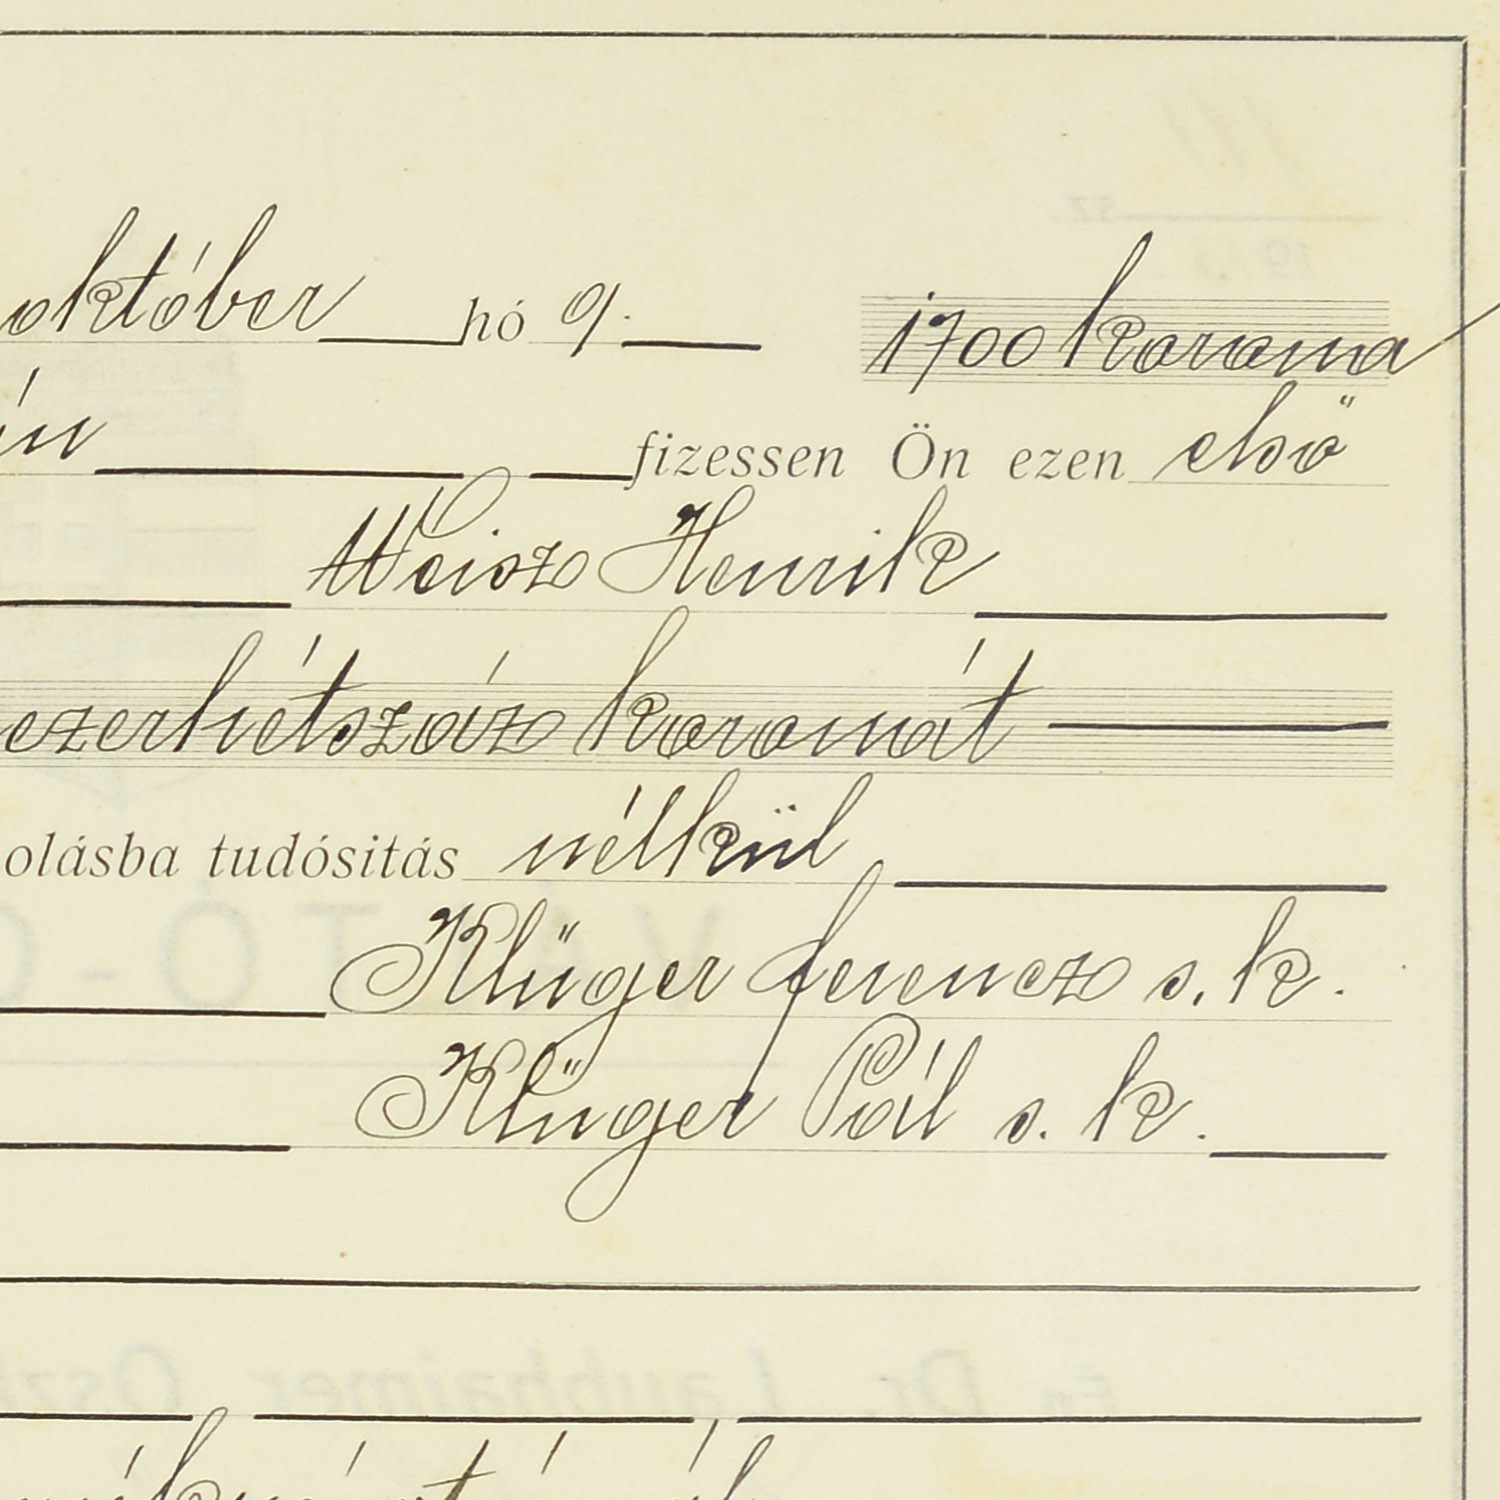 október hó 9. 1700 korona
án fizessen Ön ezen első
Weisz Henrik
ezerhétszáz koronát
olásba tudósitás nélkül
Klüger Ferencz s. k.
Klüger Pál s. k.